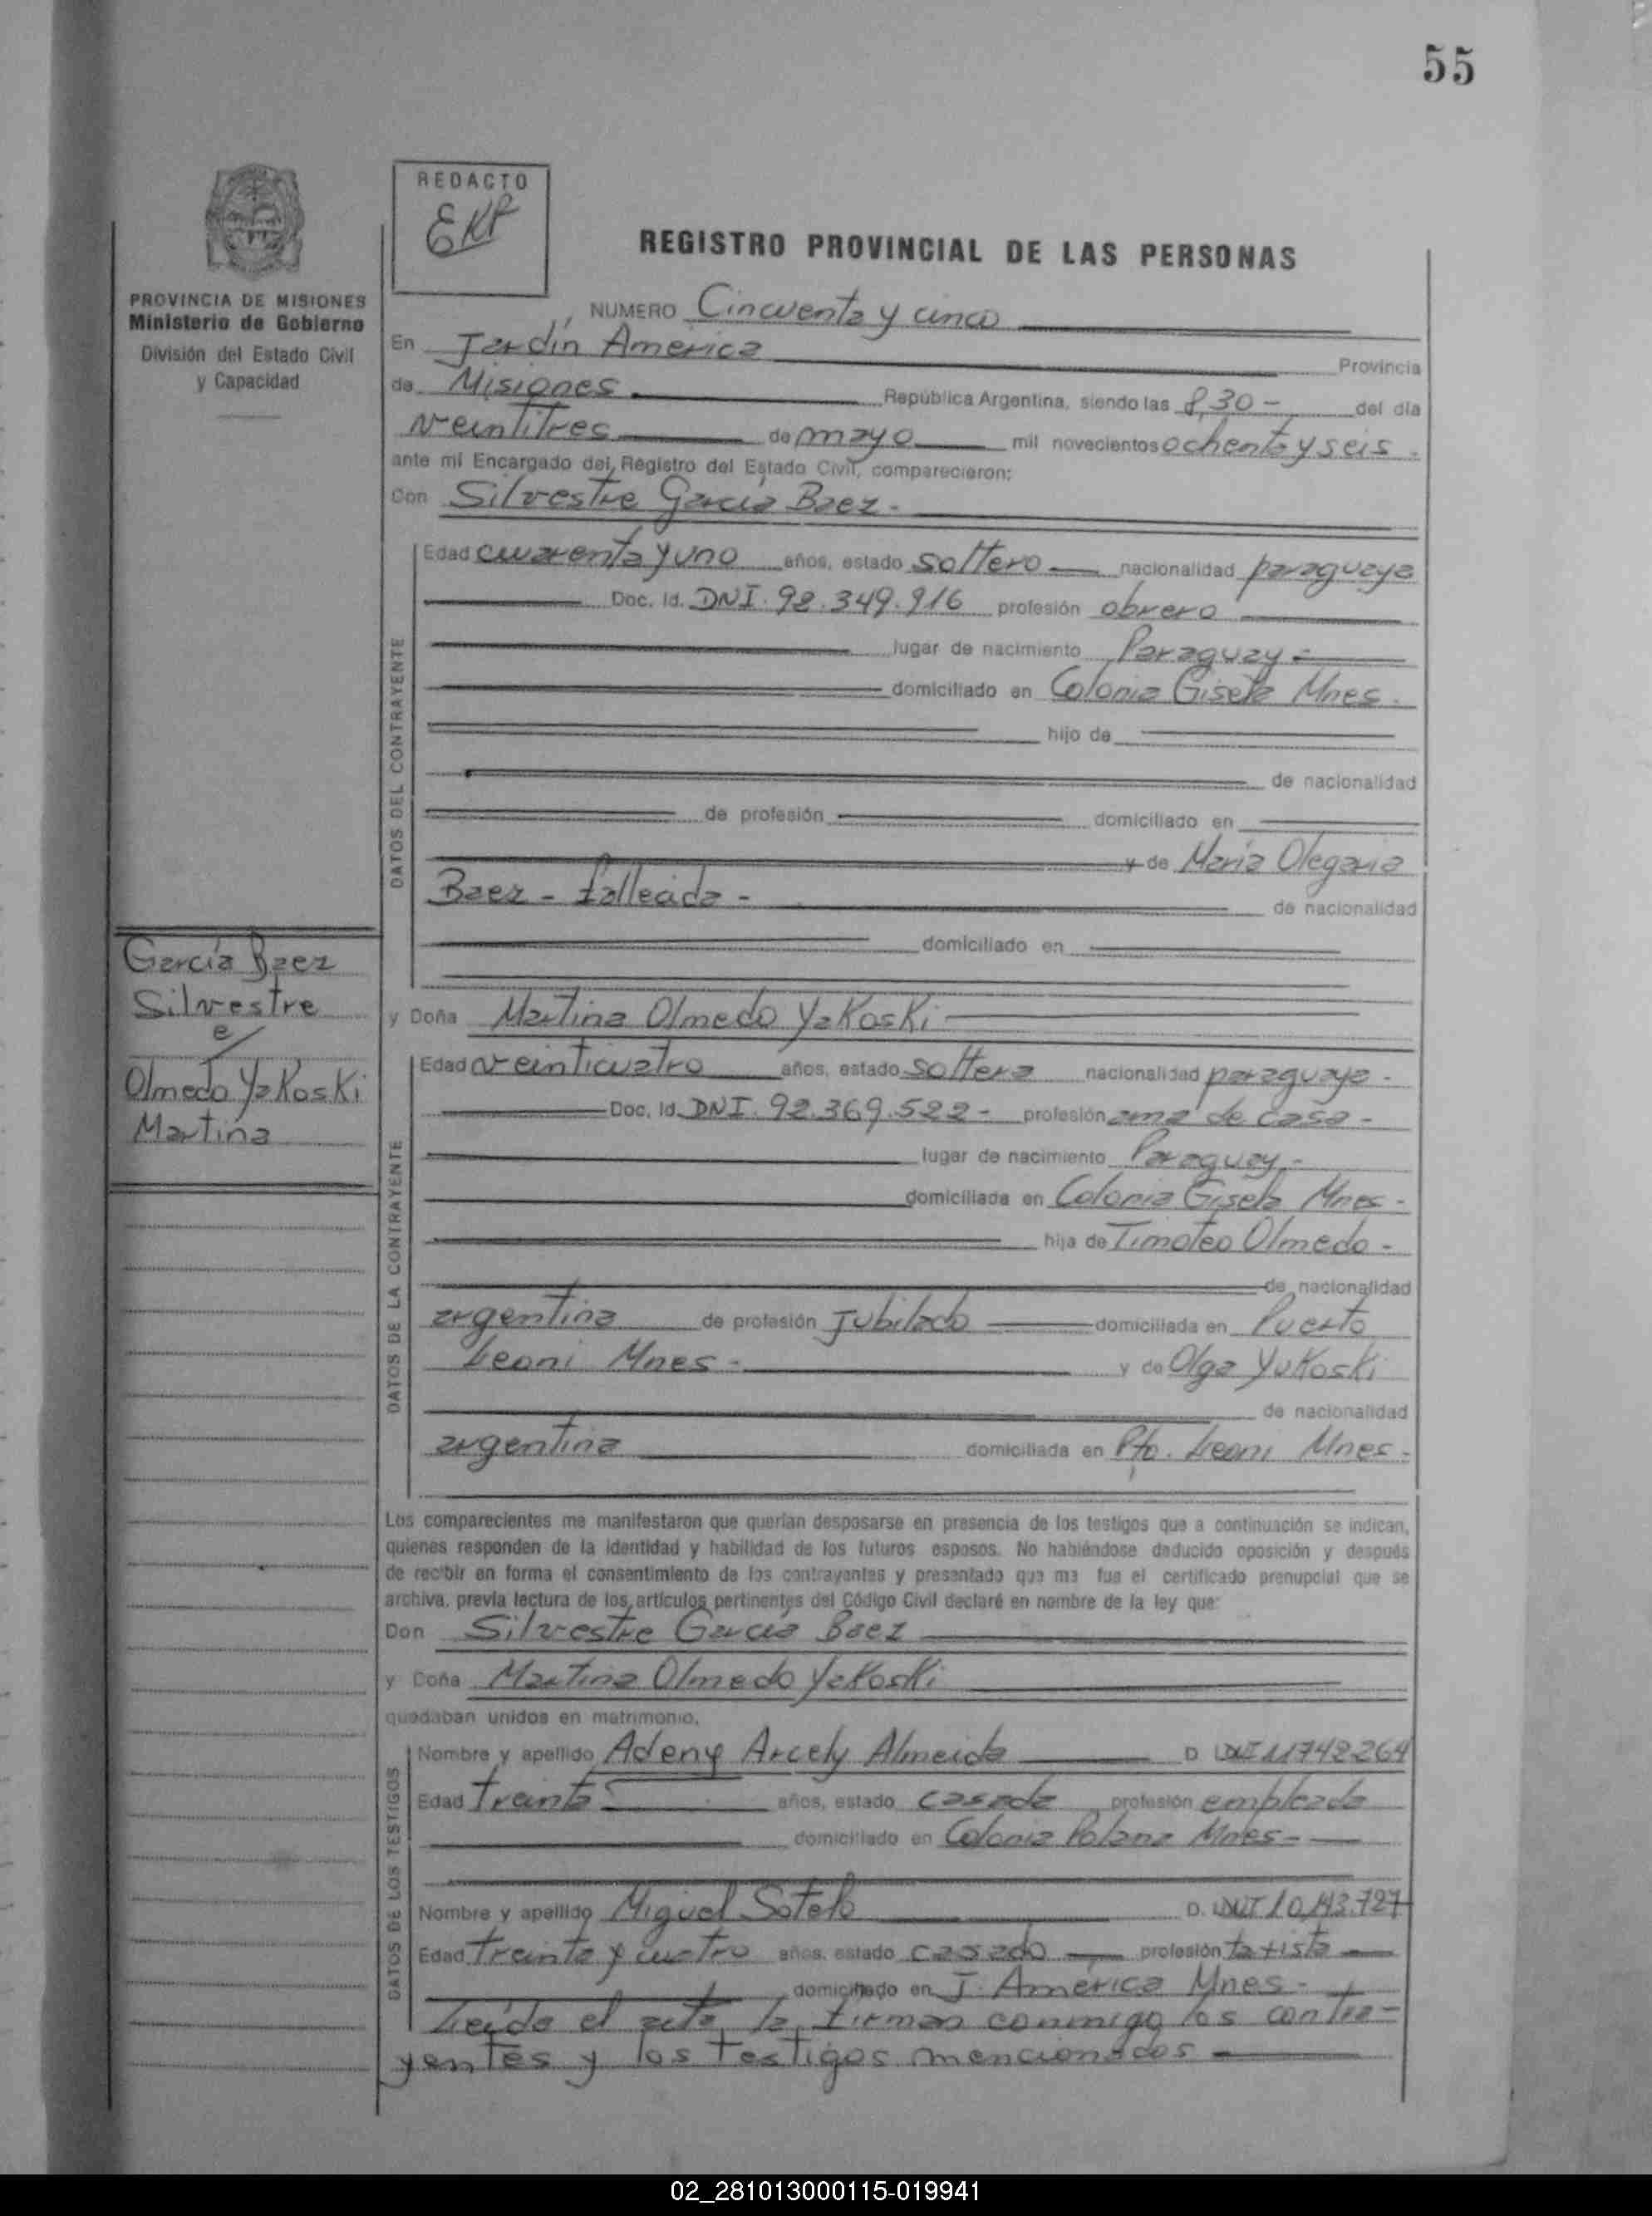 55
REDACTO
EKP
REGISTRO PROVINCIAL DE LAS PERSONAS
PROVINCIA DE MISIONES
Ministerio de Gobierno
División del Estado Civil
y Capacidad
NUMERO Cincuenta y cinco
En Jardín América Provincia
de Misiones República Argentina, siendo las 8,30 - del día
veintitres de mayo mil novecientos ochenta y seis -
ante mi Encargado del Registro del Estado Civil, comparecieron:
Don Silvestre García Baez -
DATOS DEL CONTRAYENTE
Edad cuarenta y uno años, estado soltero nacionalidad paraguaya
Doc. Id. DNI. 92.349.916 profesión obrero
lugar de nacimiento Paraguay -
domiciliado en Colonia Gisela Mnes -
hijo de
de nacionalidad
de profesión domiciliado en
y de María Olegaria
Baez - fallecida - de nacionalidad
domiciliado en
García Baez
Silvestre
e/
Olmedo YaKosKi
Martina
y Doña Martina Olmedo YaKosKi
DATOS DE LA CONTRAYENTE
Edad veinticuatro años, estado soltera nacionalidad paraguaya -
Doc. Id. DNI. 92.369.522 - profesión ama de casa -
lugar de nacimiento Paraguay -
domiciliada en Colonia Gisela Mnes -
hija de Timoteo Olmedo -
de nacionalidad
argentina de profesión jubilado domiciliada en Puerto
Leoni Mnes - y de Olga YuKosKi
de nacionalidad
argentina domiciliada en Pto. Leoni Mnes -
Los comparecientes me manifestaron que querían desposarse en presencia de los testigos que a continuación se indican,
quienes responden de la identidad y habilidad de los futuros esposos. No habiéndose deducido oposición y después
de recibir en forma el consentimiento de los contrayentes y presentado que me fue el certificado prenupcial que se
archiva, previa lectura de los artículos pertinentes del Código Civil declaré en nombre de la ley que:
Don Silvestre García Baez
y Doña Martina Olmedo YaKosKi
quedaban unidos en matrimonio.
DATOS DE LOS TESTIGOS
Nombre y apellido Adeny Arcely Almeida D. DNI 11742264
Edad treinta años, estado casada profesión empleada
domiciliado en Colonia Polana Mnes -
Nombre y apellido Miguel Sotelo D. DNI 10.143.727
Edad treinta y cuatro años, estado casado profesión taxista
domiciliado en J. América Mnes -
Leída el acta, la firman conmigo los contra-
yentes y los testigos mencionados -
02_281013000115-019941